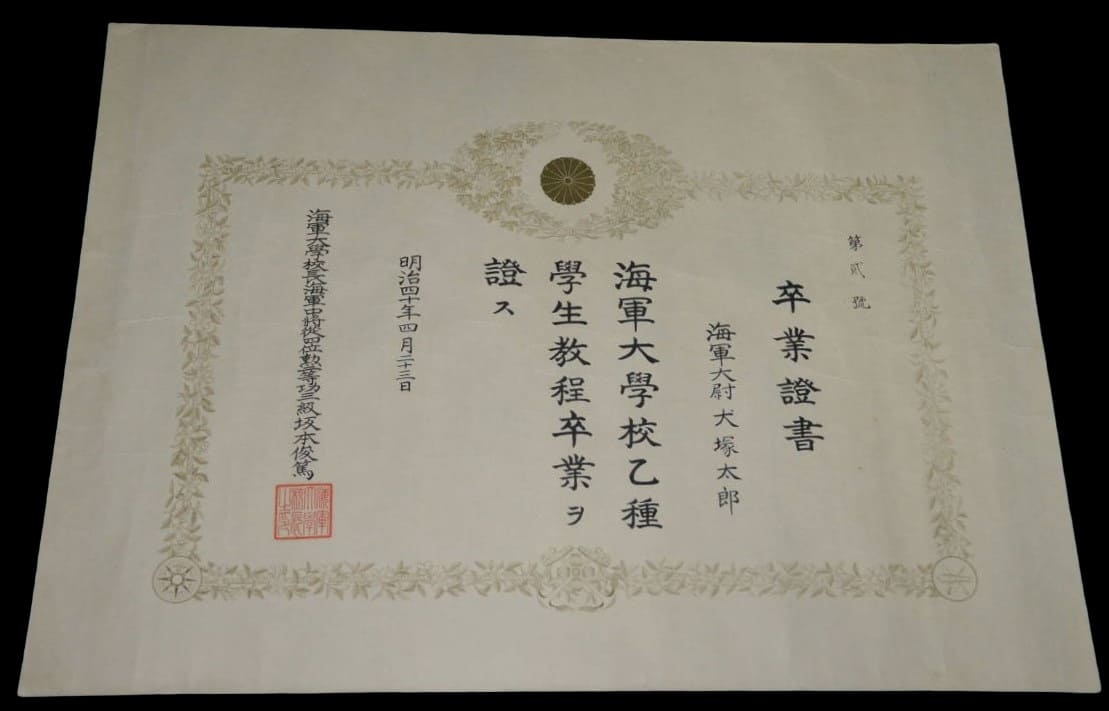 第貳號
卒業證書
海軍大尉犬塚太郎
海軍大學校乙種
學生教程卒業ヲ
證ス
明治四十年四月二十三日
海軍大學校長海軍中將從四位勲二等功三級坂本俊篤